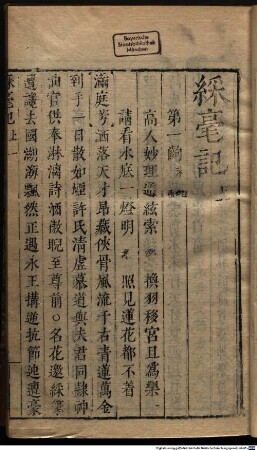 Bayerische
Staatsbibliothek
München
綵毫記 上
第一齣
高人妙理通絃索 換羽移宮且為樂
請看水底一燈明 照見蓮花都不着
滿庭芳洒落天才昂藏俠骨風流千古青蓮萬金
到手一日散如煙許氏清虛慕道與夫君同隷神
仙官供奉淋漓詩酒傲睨至尊前○名花邀綵筆
遭讒去國湖海飄然正遇永王搆逆抗節迍邅豪
綵毫記 上 一